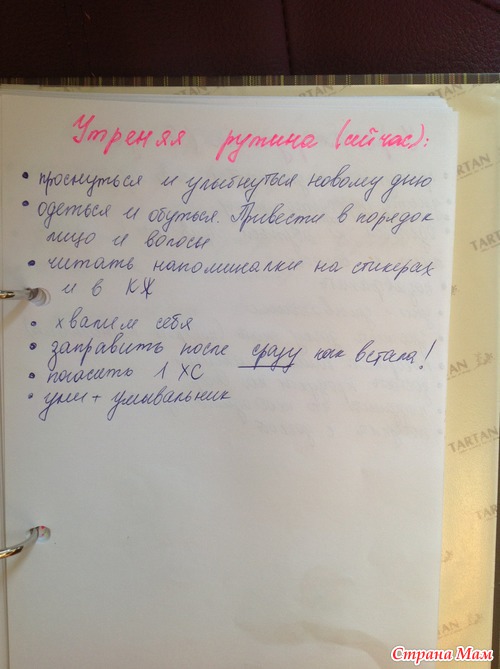 Утреняя рутина (сейчас):
• проснуться и улыбнуться новому дню
• одеться и обуться. Привести в порядок
лицо и волосы
• читать напоминалки на стикерах
и в КЖ
• хвалим себя
• заправить после сразу как встала!
• погасить 1 ХС
• уни + умывальник
TARTAN
TARTAN
TARTAN
TARTAN
TARTAN
Страна Мам